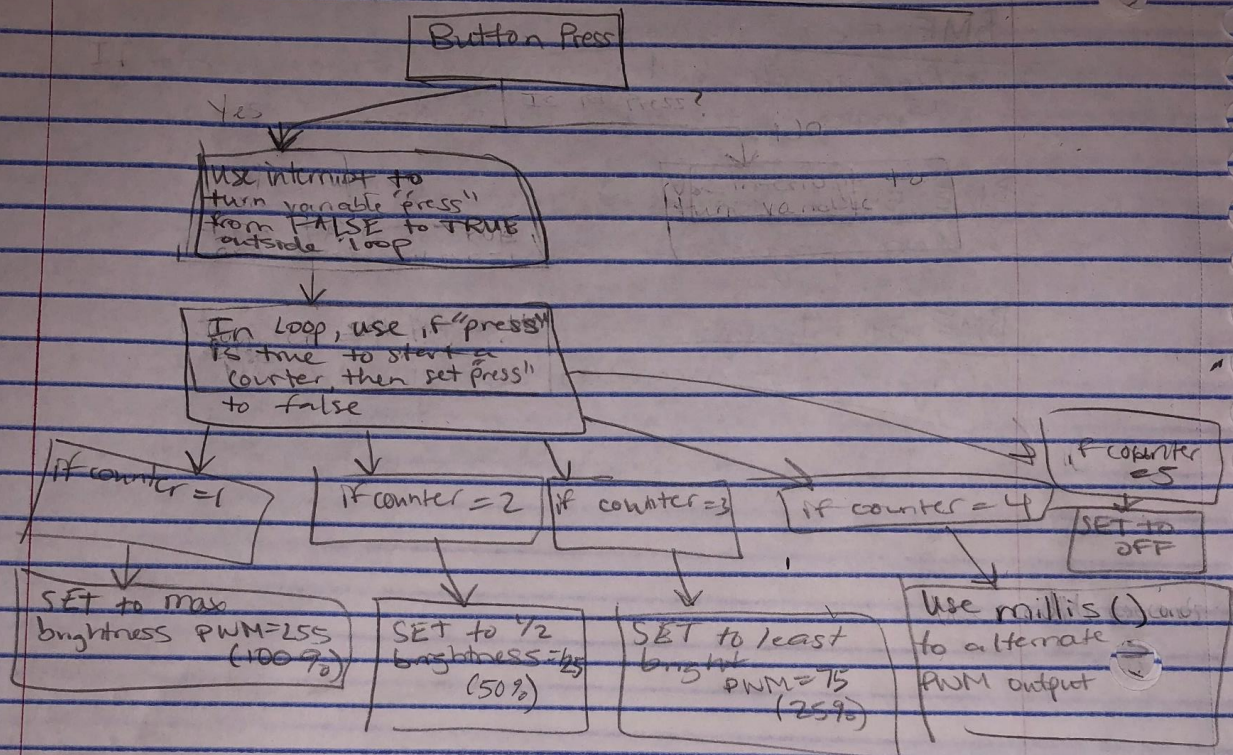 Button Press
Yes
Use interrupt to
turn variable "press"
from FALSE to TRUE
outside loop
to
turn variable
In Loop, use if "press"
is true to start a
counter, then set "press"
to false
if counter
=5
if counter=1
if counter=2
if counter=3
if counter=4
SET to
OFF
SET to max
brightness PWM=255
(100%)
SET to 1/2
brightness=125
(50%)
SET to least
bright
PWM=75
(25%)
Use millis()
to alternate
PWM output